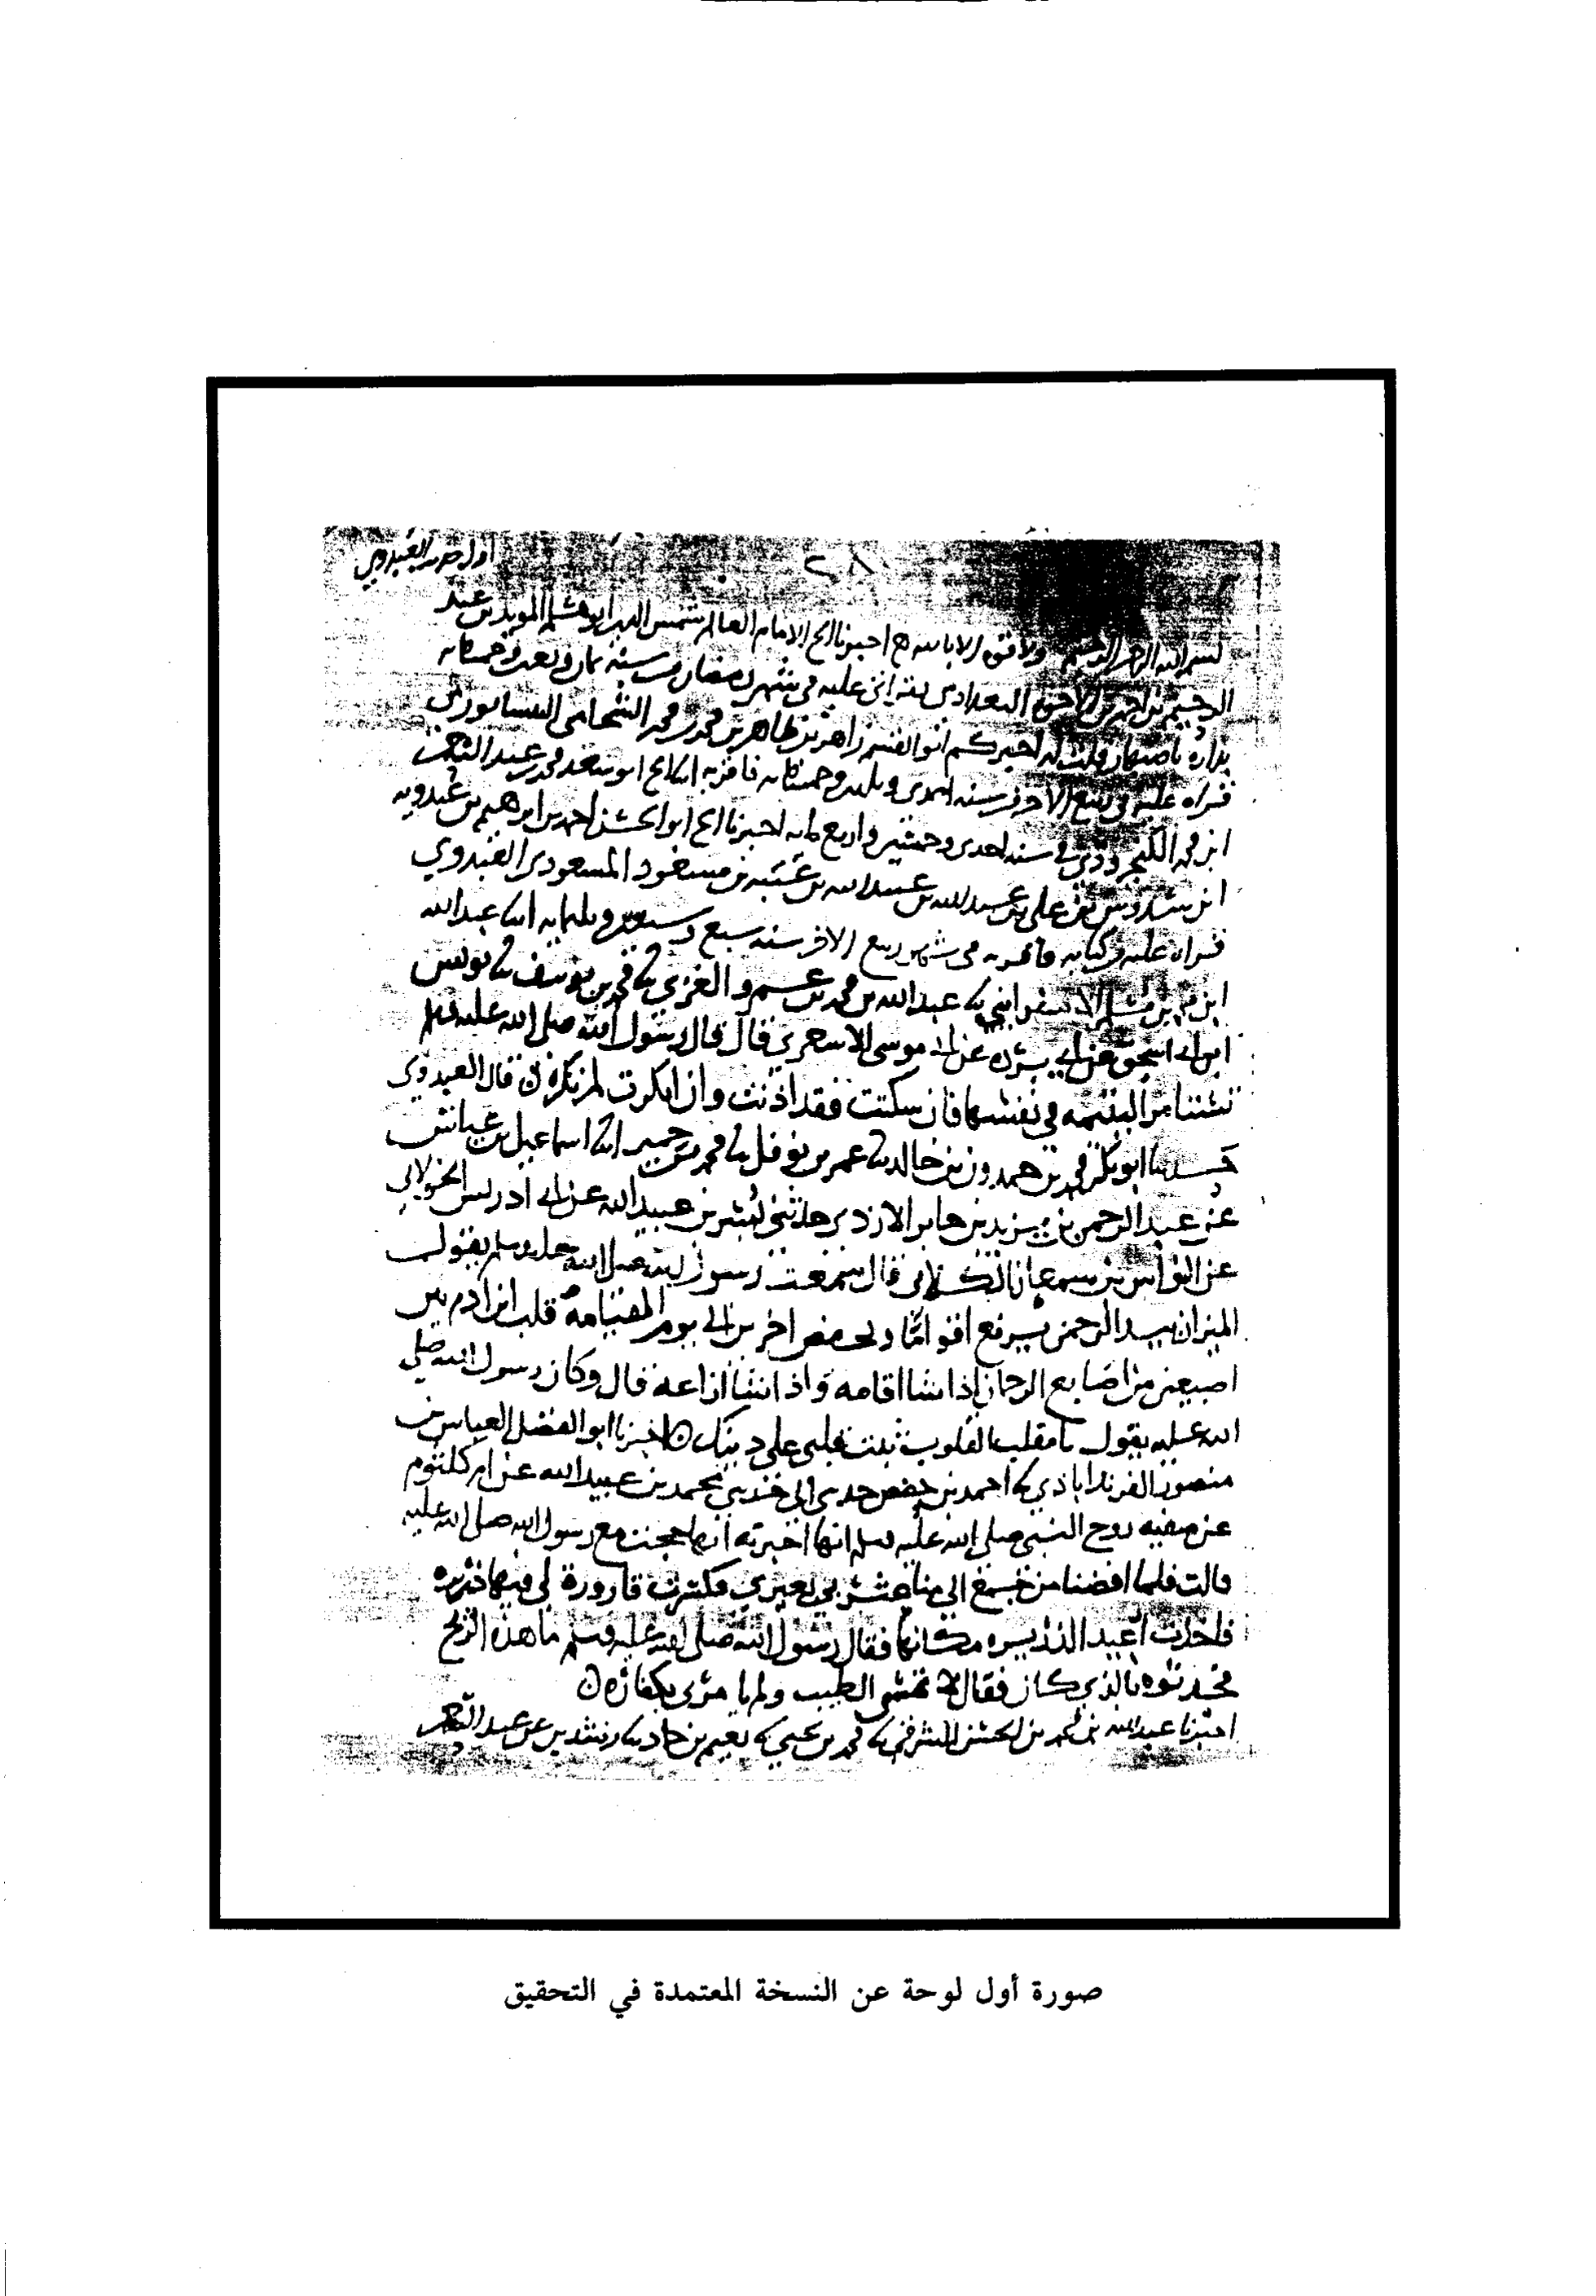 اول حديث العبدوي
٢٨
بسم الله الرحمن الرحيم ولا قوة الا بالله اخبرنا الامام العالم شمس الدين ابو هشام المويد بن عبد
الرحيم بن احمد بن الاخوة البغدادي بقراتي عليه في شهر رمضان من سنة
بداره باصبهان قلت له اخبركم ابو القسم زاهر بن طاهر بن محمد بن محمد الشحامي النيسابوري
قراه عليه في ربيع الاخر سنه احدى وخمسمايه فاقر به ابو سعد محمد بن عبد الرحمن
ابن محمد الكنجروذي في سنه احدى وخمسين واربع مايه اخبرنا ابو الحسن احمد بن ابرهيم بن عبدويه
ابن سدوس بن علي بن عبد الله بن عبيد الله بن عتبه بن مسعود المسعودي العبدوي
قراه عليه في ربيع الاخر سنه سبع وثلثمايه عبد الله
ابن محمد بن مسلم الاسفرايني عبد الله بن محمد بن عمرو الغزي محمد بن يوسف يونس
ابن ابي اسحق عن ابي برده عن ابي موسى الاشعري قال قال رسول الله صلى الله عليه وسلم
تستامر اليتيمه في نفسها فان سكتت فقد اذنت وان انكرت لم تكره قال العبدوي
حدثنا ابو بكر محمد بن حمدون بن خالد عمر بن نوفل محمد بن حمير اسماعيل بن عياش
عن عبد الرحمن بن يزيد بن جابر الازدي حدثني بسر بن عبيد الله عن ابي ادريس الخولاني
عن النواس بن سمعان الكلابي قال سمعت رسول الله صلى الله عليه وسلم يقول
الميزان بيد الرحمن يرفع اقواما ويخفض اخرين الى يوم القيامة قلب ابن ادم بين
اصبعين من اصابع الرحمان اذا شا اقامه واذا شا ازاغه قال وكان رسول الله صلى
الله عليه يقول يا مقلب القلوب ثبت قلبي على دينك اخبرنا ابو الفضل العباس بن
منصور الفرنداباذي احمد بن حفص حدثني ابي محمد بن عبيد الله عن ام كلثوم
عن صفيه زوج النبي صلى الله عليه وسلم انها اخبرته انها حجت مع رسول الله صلى الله عليه
قالت فلما افضنا من جمع الى منا عثر بي بعيري فكسرت قارورة لي فيها ذريره
فاخذت اعيد الذريره مكانها فقال رسول الله صلى الله عليه وسلم ما هذه الريح
فحدثوه بالذي كان فقال لا تمسي الطيب ولم يامرني بكفاره
اخبرنا عبد الله بن محمد بن الحسن الشرقي محمد بن يحيي نعيم بن حماد رشدين عن عبد الرحمن
صورة أول لوحة عن النسخة المعتمدة في التحقيق